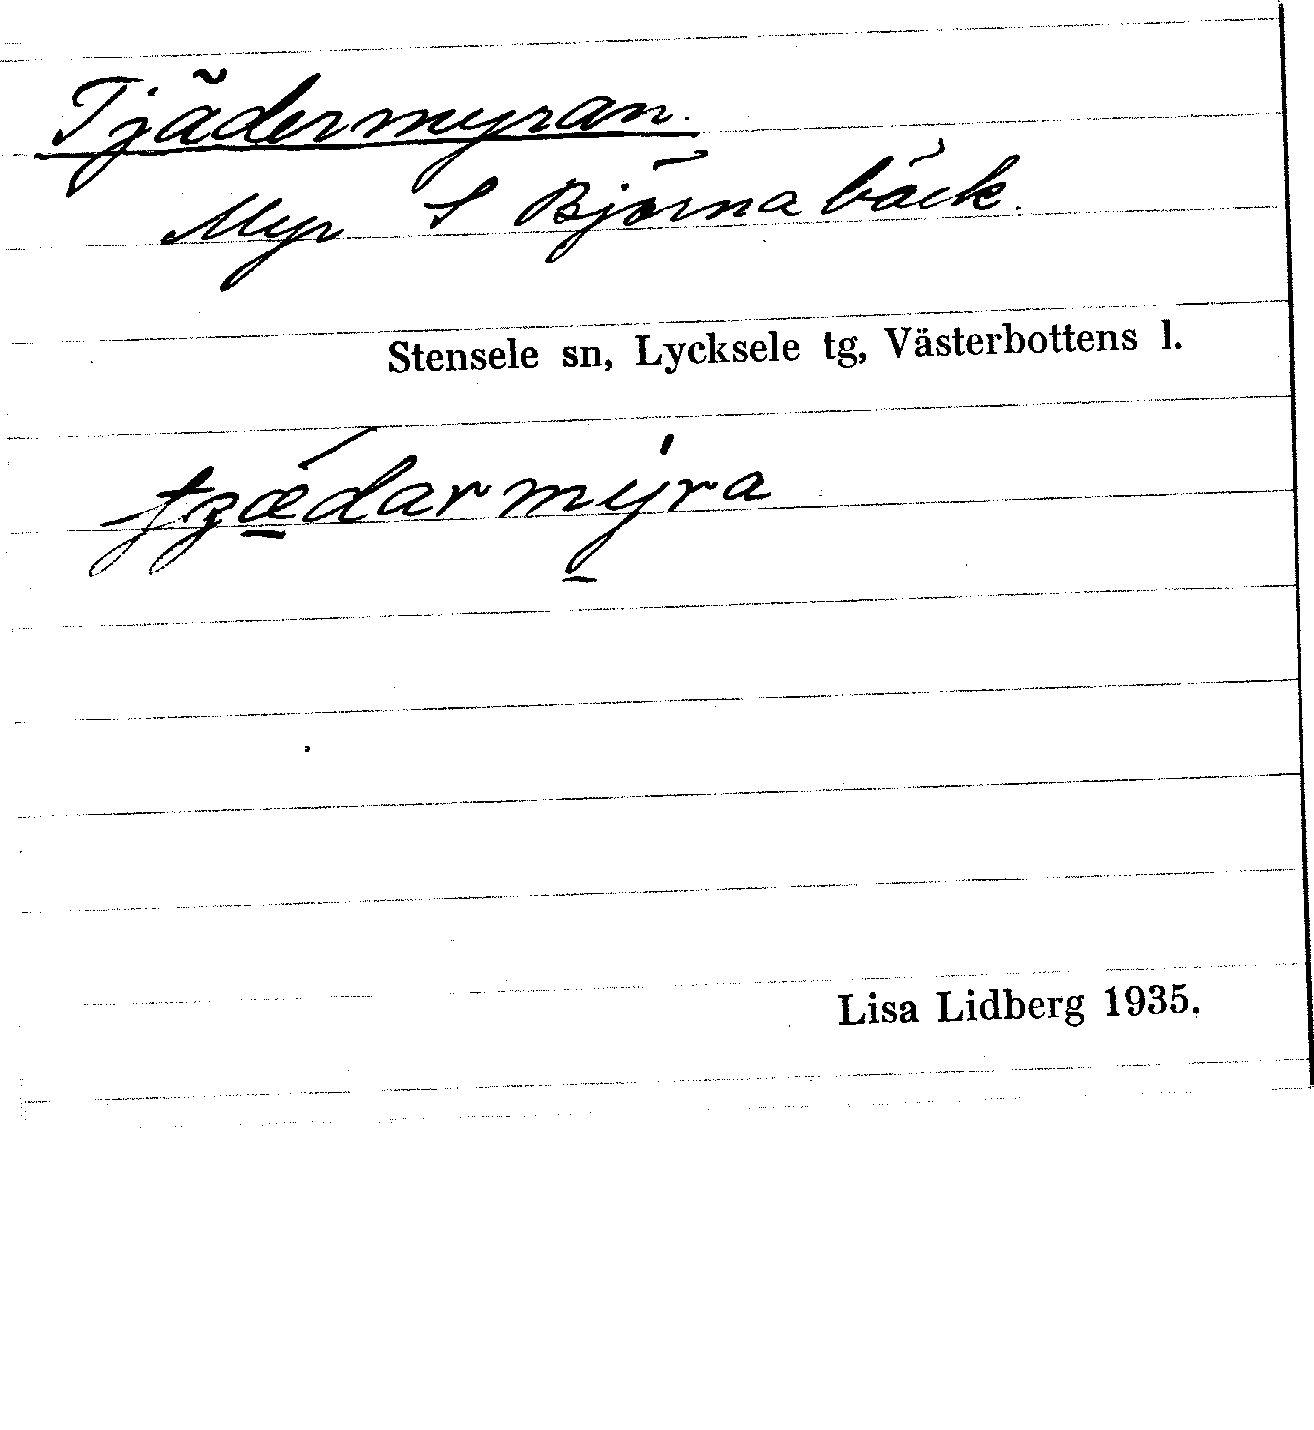 Tjädermyran.
Myr S Björnabäck.
Stensele sn, Lycksele tg, Västerbottens l.
tzǽdarmýra
Lisa Lidberg 1935.